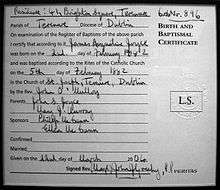 Residence: 41 Brighton Square, Terenure
Birth No. 896
Parish of Terenure Diocese of Dublin
BIRTH AND
BAPTISMAL
CERTIFICATE
On examination of the Register of Baptisms of the above parish
I certify that according to it James Augustine Joyce
was born on the 2nd day of February 1882
and was baptised according to the Rites of the Catholic Church
on the 5th day of February 1882
in the Church of St. Joseph, Terenure, Dublin
by the Rev. John O'Mulloy
Parents John S. Joyce
Mary J.
Sponsors Philip McCann
Ellen McCann
L.S.
Confirmed
Married
Given on the day of March
Signed Rev. P.P.